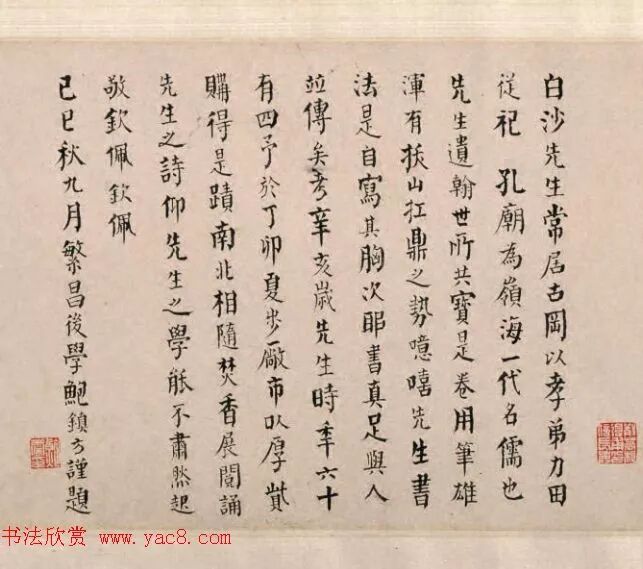 白沙先生常居古岡以孝弟力田
從祀 孔廟為嶺海一代名儒也
先生遺翰世所共寶是卷用筆雄
渾有拔山扛鼎之勢噫嘻先生書
法是自寫其胸次耶書真足與人
並傳矣考辛亥歲先生時年六十
有四予於丁卯夏步廠市以厚貲
購得是蹟南北相隨焚香展閱誦
先生之詩仰先生之學能不肅然起
敬欽佩欽佩
己巳秋九月繁昌後學鮑鎮方謹題
书法欣赏 www.yac8.com